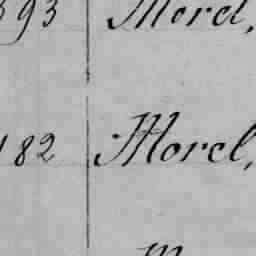 393 Morel,
182 Morel,